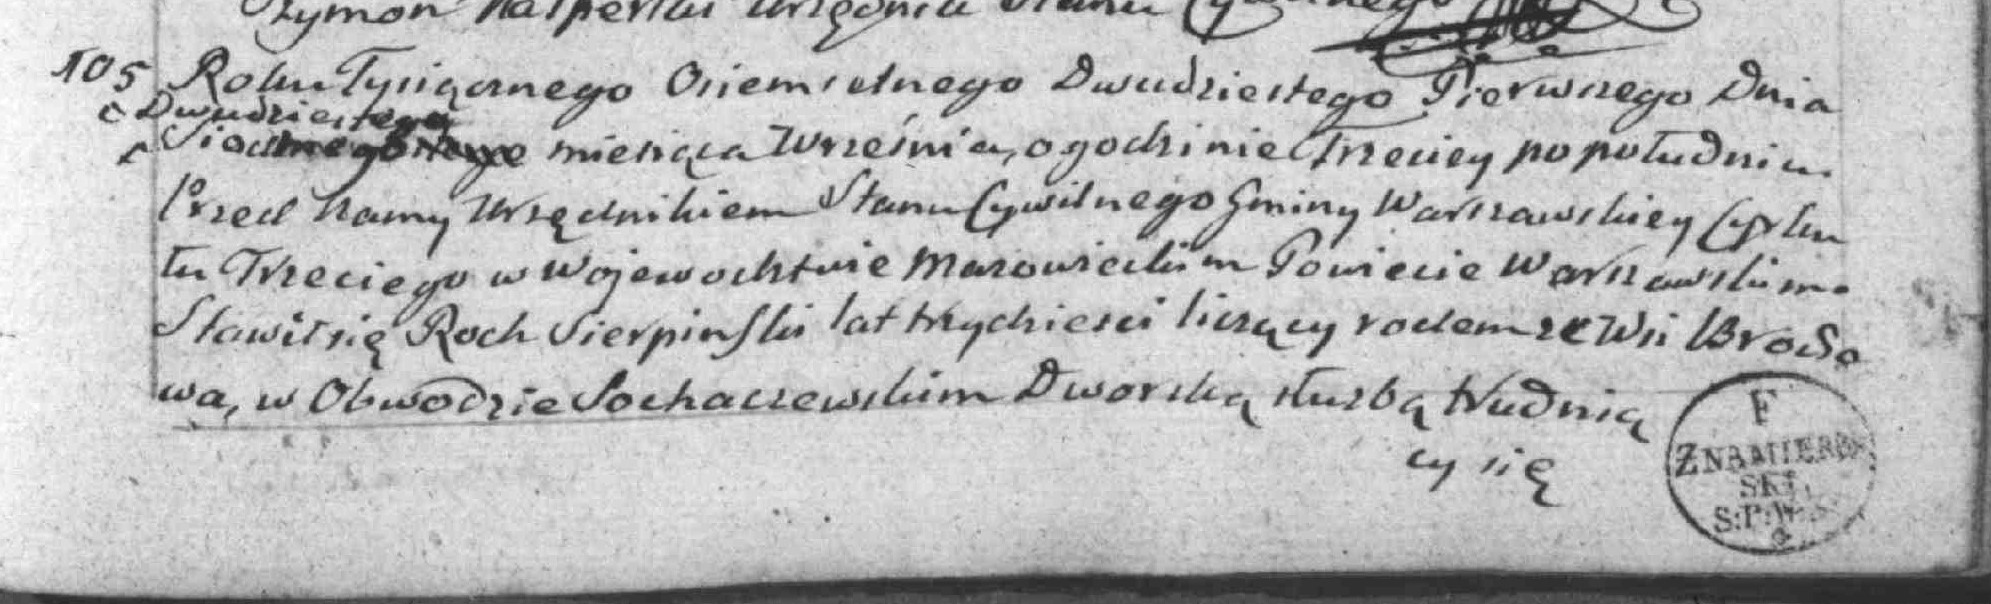 Szymon Kasperski Urzędnik Stanu Cywilnego
105 Roku Tysiącznego Osiemsetnego Dwudziestego Pierwszego Dnia
Dwudziestego
Siodmego miesiąca Września, o godzinie Trzeciey po południu.
Przed Namy Urzędnikiem Stanu Cywilnego Gminy Warszawskiey Cyrku
łu Trzeciego w Wojewodztwie Mazowieckim Powiecie Warszawskim.
Stawił się Roch Sierpinski lat trzydziesci liczący rodem ze Wsi
wa, w Obwodzie Sochaczewskim Dworską służbą trudnią
cy się
F
ZNAMIEROW
SKI,
S:P:W: